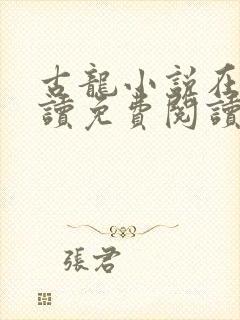 古龍小說在
讀免費閱讀
張君